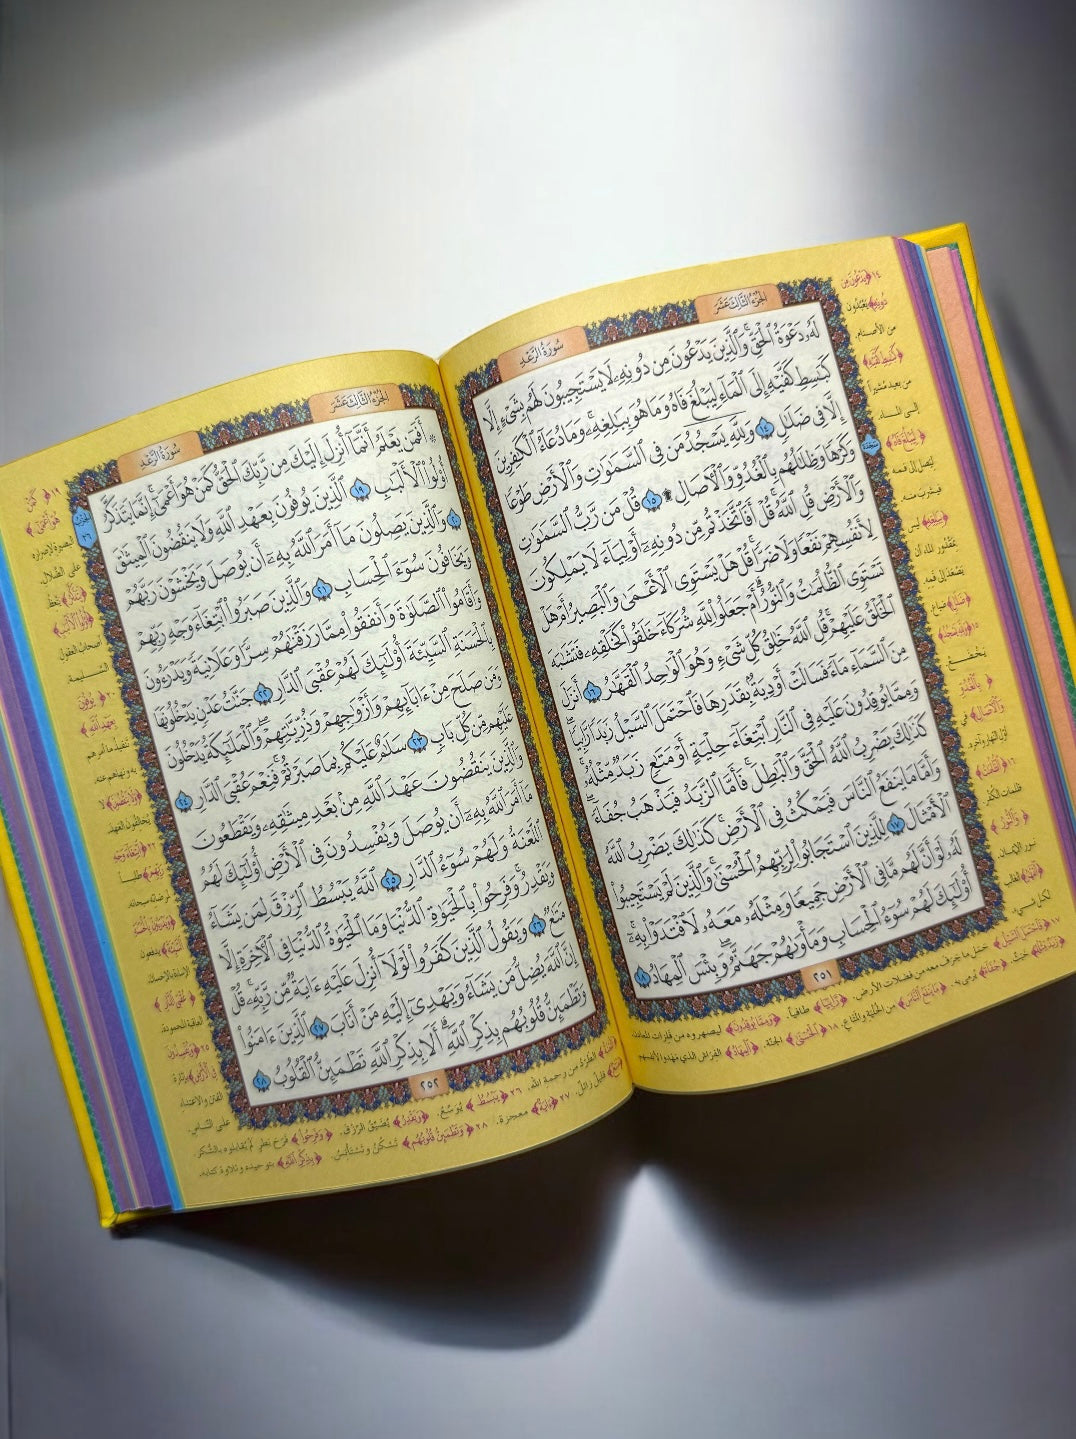 سُورَةُ الرَّعْدِ
الجُزْءُ الثَّالِثَ عَشَرَ
لَهُۥ دَعْوَةُ ٱلْحَقِّ ۖ وَٱلَّذِينَ يَدْعُونَ مِن دُونِهِۦ لَا يَسْتَجِيبُونَ لَهُم بِشَىْءٍ إِلَّا
كَبَٰسِطِ كَفَّيْهِ إِلَى ٱلْمَآءِ لِيَبْلُغَ فَاهُ وَمَا هُوَ بِبَٰلِغِهِۦ ۚ وَمَا دُعَآءُ ٱلْكَٰفِرِينَ
إِلَّا فِى ضَلَٰلٍ ١٤ وَلِلَّهِ يَسْجُدُ مَن فِى ٱلسَّمَٰوَٰتِ وَٱلْأَرْضِ طَوْعًا
وَكَرْهًا وَظِلَٰلُهُم بِٱلْغُدُوِّ وَٱلْءَاصَالِ ۩ ١٥ قُلْ مَن رَّبُّ ٱلسَّمَٰوَٰتِ
وَٱلْأَرْضِ قُلِ ٱللَّهُ ۚ قُلْ أَفَٱتَّخَذْتُم مِّن دُونِهِۦٓ أَوْلِيَآءَ لَا يَمْلِكُونَ
لِأَنفُسِهِمْ نَفْعًا وَلَا ضَرًّا ۚ قُلْ هَلْ يَسْتَوِى ٱلْأَعْمَىٰ وَٱلْبَصِيرُ أَمْ هَلْ
تَسْتَوِى ٱلظُّلُمَٰتُ وَٱلنُّورُ ۗ أَمْ جَعَلُوا۟ لِلَّهِ شُرَكَآءَ خَلَقُوا۟ كَخَلْقِهِۦ فَتَشَٰبَهَ
ٱلْخَلْقُ عَلَيْهِمْ ۚ قُلِ ٱللَّهُ خَٰلِقُ كُلِّ شَىْءٍ وَهُوَ ٱلْوَٰحِدُ ٱلْقَهَّٰرُ ١٦ أَنزَلَ
مِنَ ٱلسَّمَآءِ مَآءً فَسَالَتْ أَوْدِيَةٌۢ بِقَدَرِهَا فَٱحْتَمَلَ ٱلسَّيْلُ زَبَدًا رَّابِيًا ۚ
وَمِمَّا يُوقِدُونَ عَلَيْهِ فِى ٱلنَّارِ ٱبْتِغَآءَ حِلْيَةٍ أَوْ مَتَٰعٍ زَبَدٌ مِّثْلُهُۥ ۚ
كَذَٰلِكَ يَضْرِبُ ٱللَّهُ ٱلْحَقَّ وَٱلْبَٰطِلَ ۚ فَأَمَّا ٱلزَّبَدُ فَيَذْهَبُ جُفَآءً ۖ
وَأَمَّا مَا يَنفَعُ ٱلنَّاسَ فَيَمْكُثُ فِى ٱلْأَرْضِ ۚ كَذَٰلِكَ يَضْرِبُ ٱللَّهُ
ٱلْأَمْثَالَ ١٧ لِلَّذِينَ ٱسْتَجَابُوا۟ لِرَبِّهِمُ ٱلْحُسْنَىٰ ۚ وَٱلَّذِينَ لَمْ يَسْتَجِيبُوا۟
لَهُۥ لَوْ أَنَّ لَهُم مَّا فِى ٱلْأَرْضِ جَمِيعًا وَمِثْلَهُۥ مَعَهُۥ لَٱفْتَدَوْا۟ بِهِۦٓ ۚ
أُو۟لَٰٓئِكَ لَهُمْ سُوٓءُ ٱلْحِسَابِ وَمَأْوَىٰهُمْ جَهَنَّمُ ۖ وَبِئْسَ ٱلْمِهَادُ ١٨
٢٥١
سُورَةُ الرَّعْدِ
الجُزْءُ الثَّالِثَ عَشَرَ
۞ أَفَمَن يَعْلَمُ أَنَّمَآ أُنزِلَ إِلَيْكَ مِن رَّبِّكَ ٱلْحَقُّ كَمَنْ هُوَ أَعْمَىٰٓ ۚ إِنَّمَا يَتَذَكَّرُ
أُو۟لُوا۟ ٱلْأَلْبَٰبِ ١٩ ٱلَّذِينَ يُوفُونَ بِعَهْدِ ٱللَّهِ وَلَا يَنقُضُونَ ٱلْمِيثَٰقَ
٢٠ وَٱلَّذِينَ يَصِلُونَ مَآ أَمَرَ ٱللَّهُ بِهِۦٓ أَن يُوصَلَ وَيَخْشَوْنَ رَبَّهُمْ
وَيَخَافُونَ سُوٓءَ ٱلْحِسَابِ ٢١ وَٱلَّذِينَ صَبَرُوا۟ ٱبْتِغَآءَ وَجْهِ رَبِّهِمْ
وَأَقَامُوا۟ ٱلصَّلَوٰةَ وَأَنفَقُوا۟ مِمَّا رَزَقْنَٰهُمْ سِرًّا وَعَلَانِيَةً وَيَدْرَءُونَ
بِٱلْحَسَنَةِ ٱلسَّيِّئَةَ أُو۟لَٰٓئِكَ لَهُمْ عُقْبَى ٱلدَّارِ ٢٢ جَنَّٰتُ عَدْنٍ يَدْخُلُونَهَا
وَمَن صَلَحَ مِنْ ءَابَآئِهِمْ وَأَزْوَٰجِهِمْ وَذُرِّيَّٰتِهِمْ ۖ وَٱلْمَلَٰٓئِكَةُ يَدْخُلُونَ
عَلَيْهِم مِّن كُلِّ بَابٍ ٢٣ سَلَٰمٌ عَلَيْكُم بِمَا صَبَرْتُمْ ۚ فَنِعْمَ عُقْبَى ٱلدَّارِ ٢٤
وَٱلَّذِينَ يَنقُضُونَ عَهْدَ ٱللَّهِ مِنۢ بَعْدِ مِيثَٰقِهِۦ وَيَقْطَعُونَ
مَآ أَمَرَ ٱللَّهُ بِهِۦٓ أَن يُوصَلَ وَيُفْسِدُونَ فِى ٱلْأَرْضِ ۙ أُو۟لَٰٓئِكَ لَهُمُ
ٱللَّعْنَةُ وَلَهُمْ سُوٓءُ ٱلدَّارِ ٢٥ ٱللَّهُ يَبْسُطُ ٱلرِّزْقَ لِمَن يَشَآءُ
وَيَقْدِرُ ۚ وَفَرِحُوا۟ بِٱلْحَيَوٰةِ ٱلدُّنْيَا وَمَا ٱلْحَيَوٰةُ ٱلدُّنْيَا فِى ٱلْءَاخِرَةِ إِلَّا
مَتَٰعٌ ٢٦ وَيَقُولُ ٱلَّذِينَ كَفَرُوا۟ لَوْلَآ أُنزِلَ عَلَيْهِ ءَايَةٌ مِّن رَّبِّهِۦ ۗ قُلْ
إِنَّ ٱللَّهَ يُضِلُّ مَن يَشَآءُ وَيَهْدِىٓ إِلَيْهِ مَنْ أَنَابَ ٢٧ ٱلَّذِينَ ءَامَنُوا۟
وَتَطْمَئِنُّ قُلُوبُهُم بِذِكْرِ ٱللَّهِ ۗ أَلَا بِذِكْرِ ٱللَّهِ تَطْمَئِنُّ ٱلْقُلُوبُ ٢٨
٢٥٢